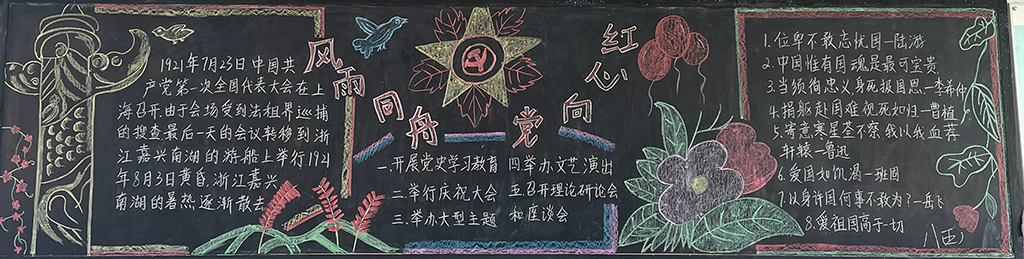 1921年7月23日中国共
产党第一次全国代表大会在上
海召开,由于会场受到法租界巡捕
的搜查最后一天的会议转移到浙
江嘉兴南湖的游船上举行1921
年8月3日黄昏,浙江嘉兴
南湖的暑热逐渐散去
风雨
同舟
红心
向
党
一.开展党史学习教育
二.举行庆祝大会
三.举办大型主题
四举办文艺演出
五召开理论研论会
和座谈会
1.位卑不敢忘忧国一陆游
2.中国惟有国魂是最可宝贵
3.当须徇忠义身死报国恩一李希仲
4.捐躯赴国难视死如归一曹植
5.寄意寒星荃不察我以我血荐
轩辕一鲁迅
6.爱国如饥渴一班固
7.以身许国何事不敢为?一岳飞
8.爱祖国高于一切